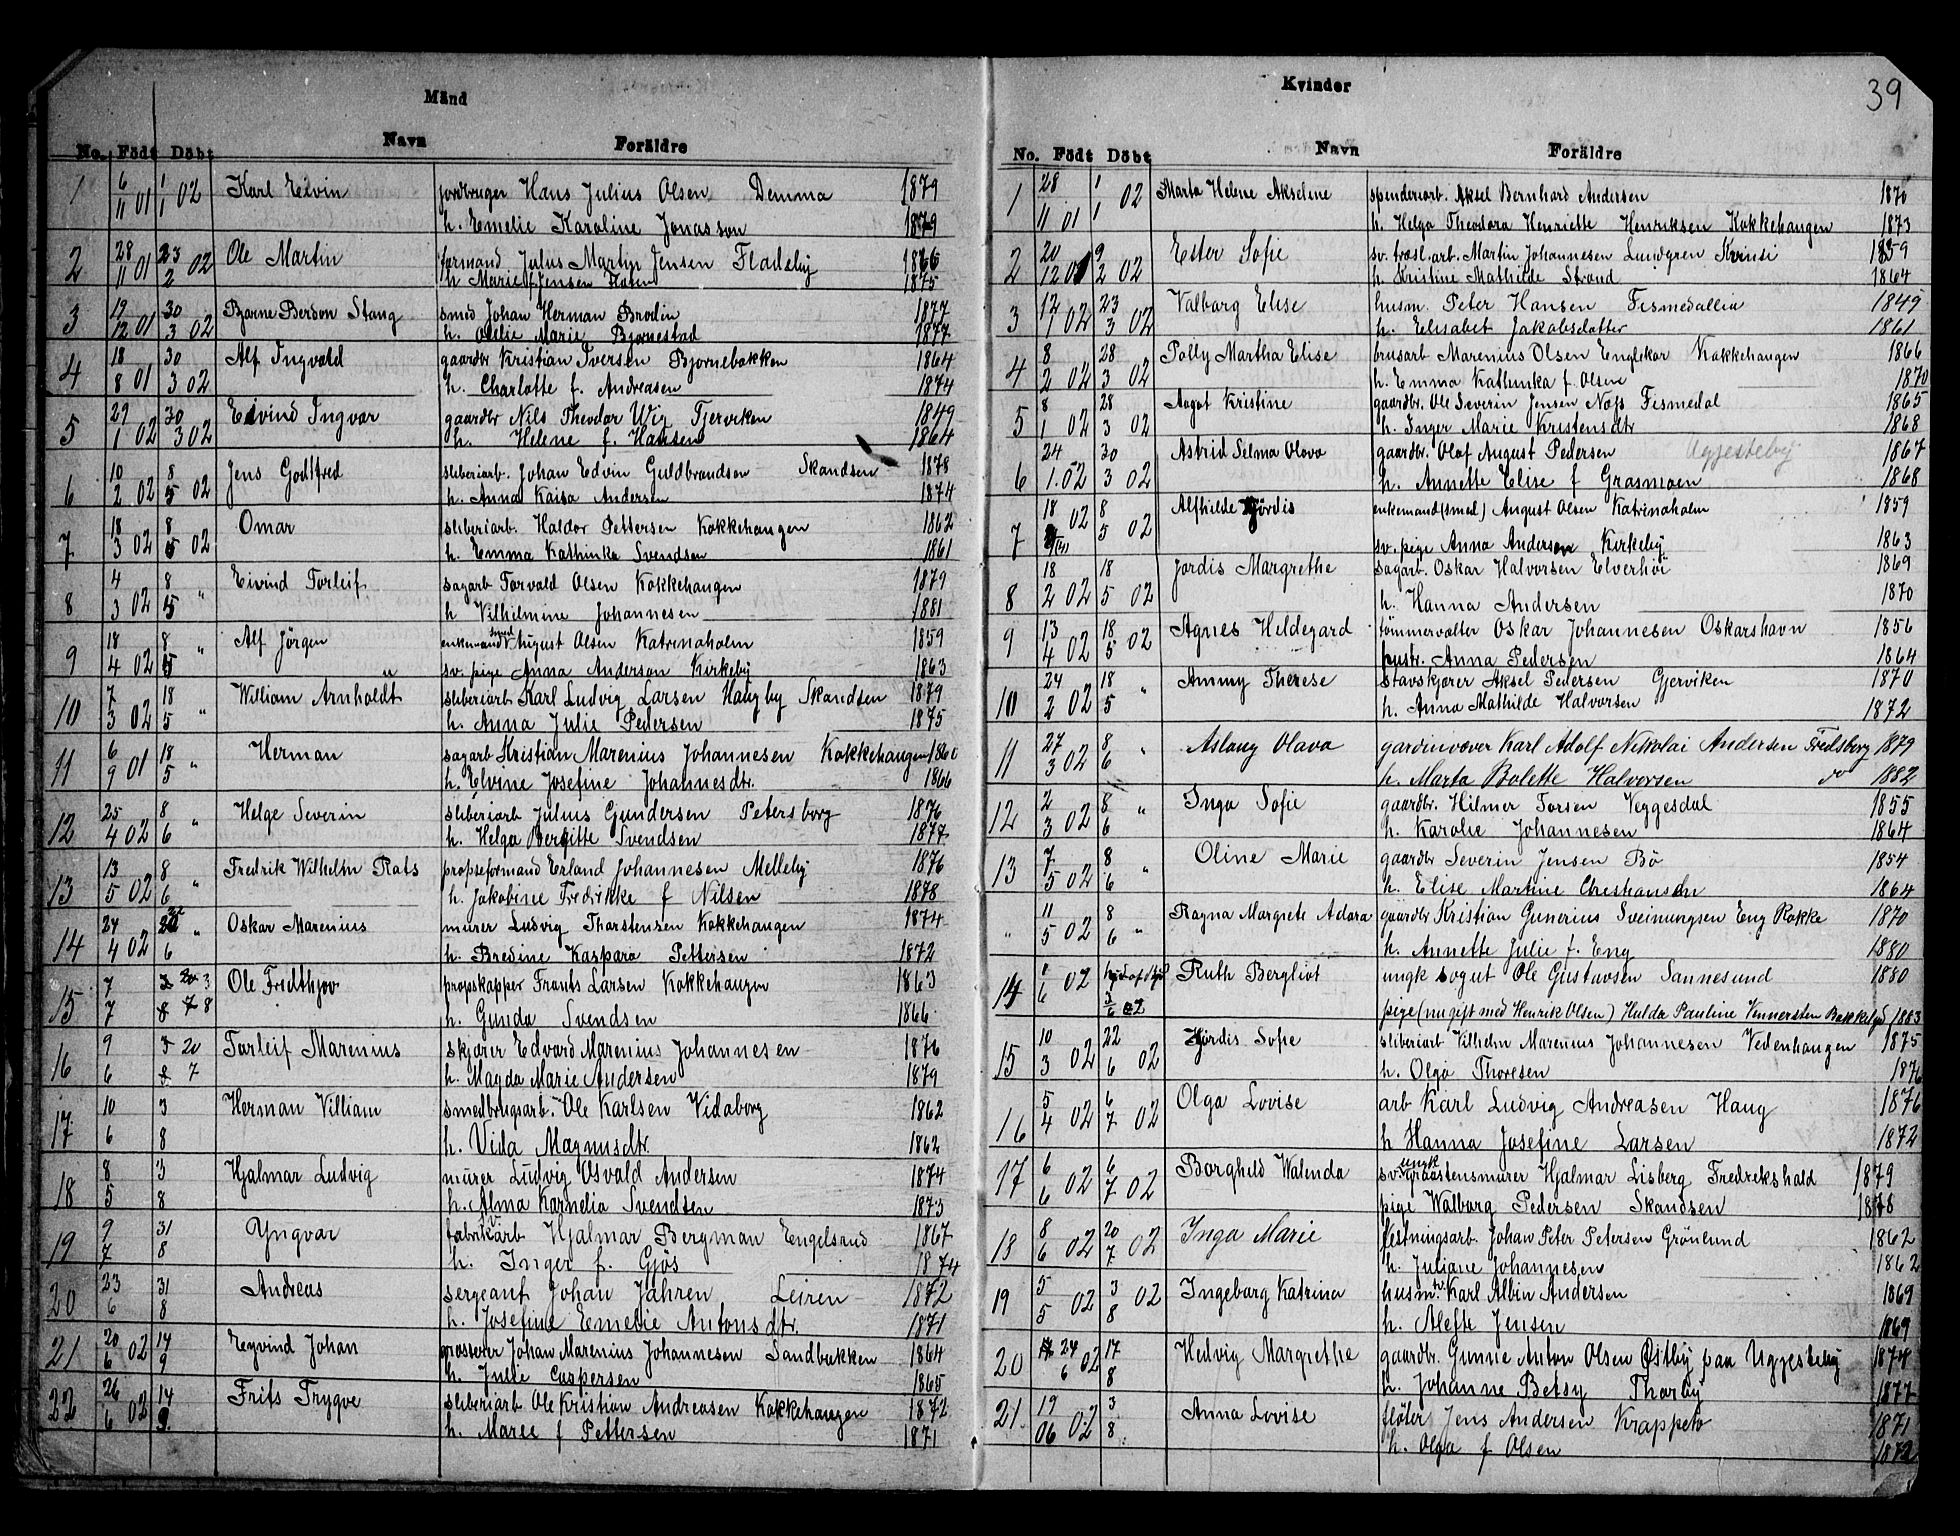 39
Mänd
No. Födt Döbt Navn Foräldre
1 6/11 01 1/1 02 Karl Eivin jordbruger Hans Julius Olsen Demma 1879
h. Emelie Karoline Jonasson 1879
2 28/11 01 23/2 02 Ole Martin formand Julus Martin Jensen Fladeby 1876
h Marie f. Jensen 1875
3 19/12 01 30/3 02 Bjarne Berdon Stang smed Johan Herman Brodin 1877
h. Marie Bjornestad 1877
4 18/8 01 30/3 02 Alf Ingvald gaardbr Kristian Iversen Bjornebakken 1864
h. Charlotte f. Andreasen 1874
5 29/1 02 30/3 02 Eivind Ingvar gaardbr Nils Theodor Wig Tjerviken 1849
h. Helene f. Hansen 1864
6 10/2 02 8/5 02 Jens Godtfred sliberiarb. Johan Edvin Guldbrandsen Skandsen 1878
h. Anna Kaisa Andersen 1874
7 18/3 02 8/5 02 Omar sliberiarb. Haldor Pettersen Kokkehaugen 1862
h. Emma Kathinka Svendsen 1861
8 4/3 02 8/5 " Eivind Torleif sagarb Torvald Olsen Kokkehaugen 1879
h Vilhilmine Johannesen 1881
9 18/4 02 8/5 " Alf Jörgen enkemand smed August Olsen Katrinaholm 1859
sv. pige Anna Anderson Kirkeby 1863
10 7/3 02 18/5 " William Arnholdt sliberiarb Karl Ludvig Larsen Haugby Skandsen 1879
h. Anna Julie Pedersen 1875
11 6/9 01 18/5 " Herman sagarb Kristian Marenius Johannesen Kokkehaugen 1860
h. Elvine Josefine Johannesdtr. 1866
12 25/4 02 8/6 " Helge Severin sliberiarb Julius Gundersen Petersborg 1876
h. Helga Bergitte Svendsen 1877
13 13/5 02 8/6 " Fredrik Wilhelm Rots propseformand Erland Johannesen Melleby 1876
h. Jakobine Fredrikke f Nilsen 1878
14 24/4 02 22/6 " Oskar Marenius murer Ludvig Thorstensen Kokkehaugen 1874
h. Bredine Kaspara Pettersen 1872
15 7/7 20/7 3/8 Ole Fridthjov propskapper Frants Larsen Kokkehaugen 1863
h. Gunda Svendsen 1866
16 9/6 3/8 20/7 Torleif Marenius skjærer Edvard Marenius Johannesen 1876
h. Magda Marie Andersen 1879
17 10/6 3/8 Herman Villiam smedbrugsarb. Ole Karlsen Vidaborg 1862
h. Vida Magnusdtr. 1862
18 8/5 3/8 Hjalmar Ludvig murer Ludvig Osvald Andersen 1874
h. Alma Kornelia Svendsen 1873
19 9/7 31/8 Yngvar fabrikarb Hjalmar Bergman Engelsrud 1867
h. Inger f. Gjös 1874
20 23/6 31/8 Andreas sergeant Johan Jahren Leiren 1872
h. Josefine Emelie Antonsdtr. 1871
21 20/6 02 14/9 Eyvind Johan grosserer Johan Marenius Johannesen Sandbakken 1864
h. Julie Caspersen 1865
22 26/6 02 14/9. Frits Trygve sliberiarb Ole Kristian Andreasen Kokkehaugen 1872
h. Marie f Pettersen 1871
Kvinder
No. Födt Döbt Navn Foräldre
1 28/11 01 1/1 02 Marta Helene Akseline spenderiarb. Aksel Bernhard Andersen 1870
h. Helga Theodora Henriette Henriksen Kokkehaugen 1873
2 20/12 01 9/2 02 Ester Sofie sv. træsl.arb. Martin Johannesen Lundgren 1859
h. Kristine Mathilde Strand 1864
3 12/1 02 23/3 02 Valborg Elise husm. Peter Hansen Fismedallia 1849
h. Elisabet Jakobsdatter 1861
4 8/2 02 28/3 02 Polly Martha Elise brusarb Marenius Olsen Englekor Kokkehaugen 1866
h. Emma Kathinka f. Olsen 1870
5 8/1 02 28/3 02 Aagot Kristine gaardbr. Ole Severin Jensen Næss Fismedal 1865
h. Inger Marie Kristensdtr 1868
6 24/1. 02 30/3 02 Astrid Selma Olava gaardbr. Olaf August Pedersen Uggjesteby 1867
h. Annette Elise f Grasmoen 1868
7 18 02 8/5 02 Alfhilde Hjördis enkemand (smed) August Olsen Katrinaholm 1859
sv. pige Anna Andersen Kirkeby 1863
8 18/2 02 18/5 02 Jordis Margrethe sagarb. Oskar Halvorsen Elverhöi 1869
h. Hanna Andersen 1870
9 13/4 02 18/5 02 Agnes Hildegard tömmervælter Oskar Johannesen Oskarshavn 1856
hustr. Anna Pedersen 1864
10 24/2 02 18/5 " Ammy Therese stavskjærer Aksel Pedersen Gjerviken 1870
h. Anna Mathilde Halvorsen 1872
11 27/3 02 8/6 " Aslaug Olava gardinvæver Karl Adolf Nikolai Andersen Fredsborg 1879
h. Marta Bolette Halvorsen do 1882
12 2/3 02 8/6 " Inga Sofie gaardbr. Hilmer Torsen Veggesdal 1855
h. Karolie Johannesen 1864
13 7/5 02 8/6 " Oline Marie gaardbr Severin Jensen Bö 1854
h. Elise Martine Christiansen 1864
" 11/5 02 8/6 " Ragna Margrete Adora gaardbr Kristian Gunerius Sveinungsen Eng Rokke 1870
h. Annette Julie f. Eng 1880
14 1/6 02 3/6 02 Ruth Bergliot ungk sogut Ole Gustavsen Sannesund 1880
pige (nu gift med Henrik Olsen) Hulda Pauline Vennersten 1883
15 10/3 02 22/6 02 Hjordis Sofie sliberiarb Vilhelm Marenius Johannesen Vedenhaugen 1875
h. Olga Thoresen 1876
16 5/4 02 6/7 02 Olga Lovise arb Karl Ludvig Andreasen Haug 1876
h Hanna Josefine Larsen 1872
17 6/6 02 6/7 02 Borghild Walenda sv. ungk graastensmurer Hjalmar Lisberg Fredrikshald 1879
pige Walborg Pedersen Skandsen 1878
18 8/6 02 20/7 02 Inga Marie festningsarb. Johan Peter Petersen Grönlund 1862
h. Juliane Johannesen 1862
19 5/5 02 3/8 02 Ingeborg Katrina husm. Karl Albin Andersen 1869
h. Alefte Jensen 1869
20 24/6 02 17/8 Hedvig Margrethe gaardbr. Gunne Anton Olsen Østby paa Uggesteby 1874
h. Johanne Betsy Thorby 1877
21. 19/06 02 3/8 Anna Lovise fløter Jens Andersen Krappeto 1871
h. Olga f Olsen 1872